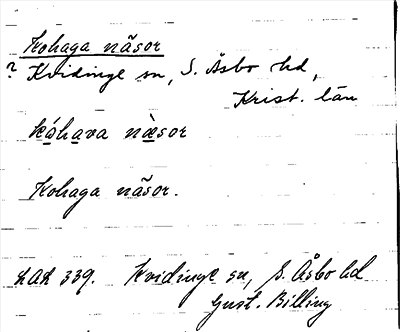 Kohaga näsor
? Kvidinge sn, S. Åsbo hd,
Krist. län
kóhava nὰsor
Kohaga näsor.
LAL 339. Kvidinge sn, S. Åsbo hd
Gust. Billing